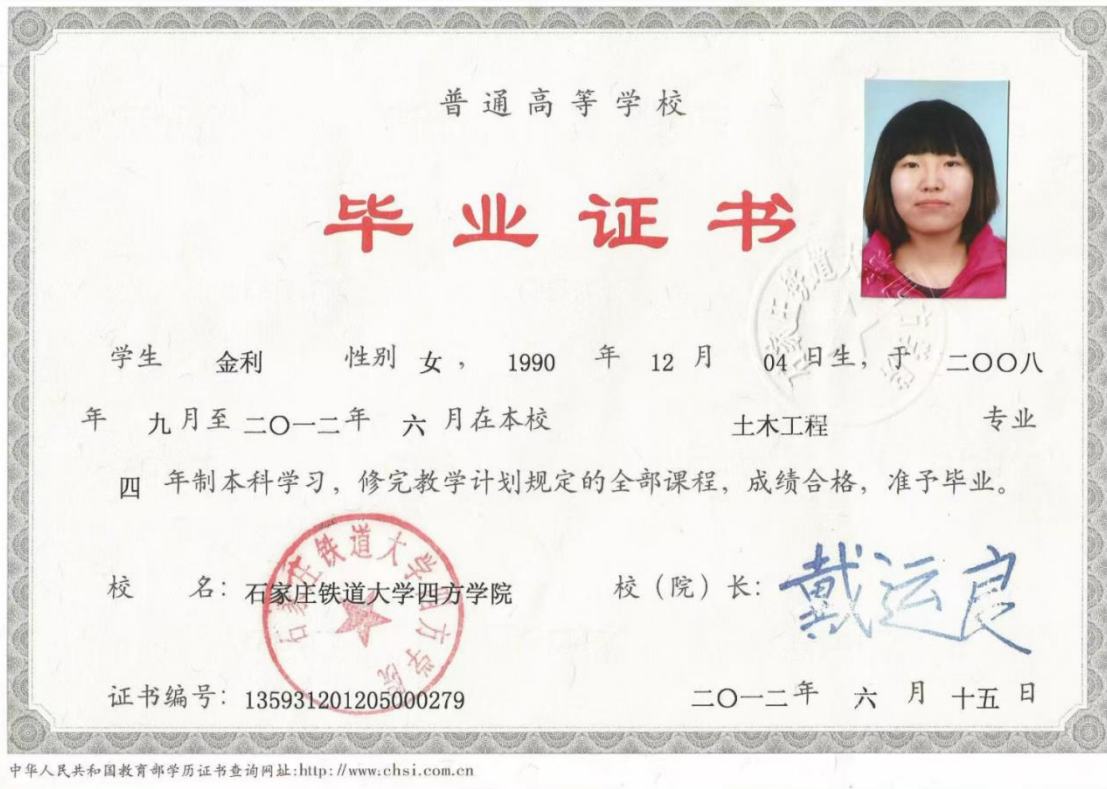 普通高等学校
毕业证书
学生 金利 性别 女 ， 1990 年 12 月 04 日生，于 二〇〇八
年 九 月至 二〇一二 年 六 月在本校 土木工程 专业
四 年制本科学习，修完教学计划规定的全部课程，成绩合格，准予毕业。
校 名：石家庄铁道大学四方学院 校（院）长：戴运良
石家庄铁道大学四方学院
证书编号：135931201205000279 二〇一二 年 六 月 十五 日
中华人民共和国教育部学历证书查询网址:http://www.chsi.com.cn